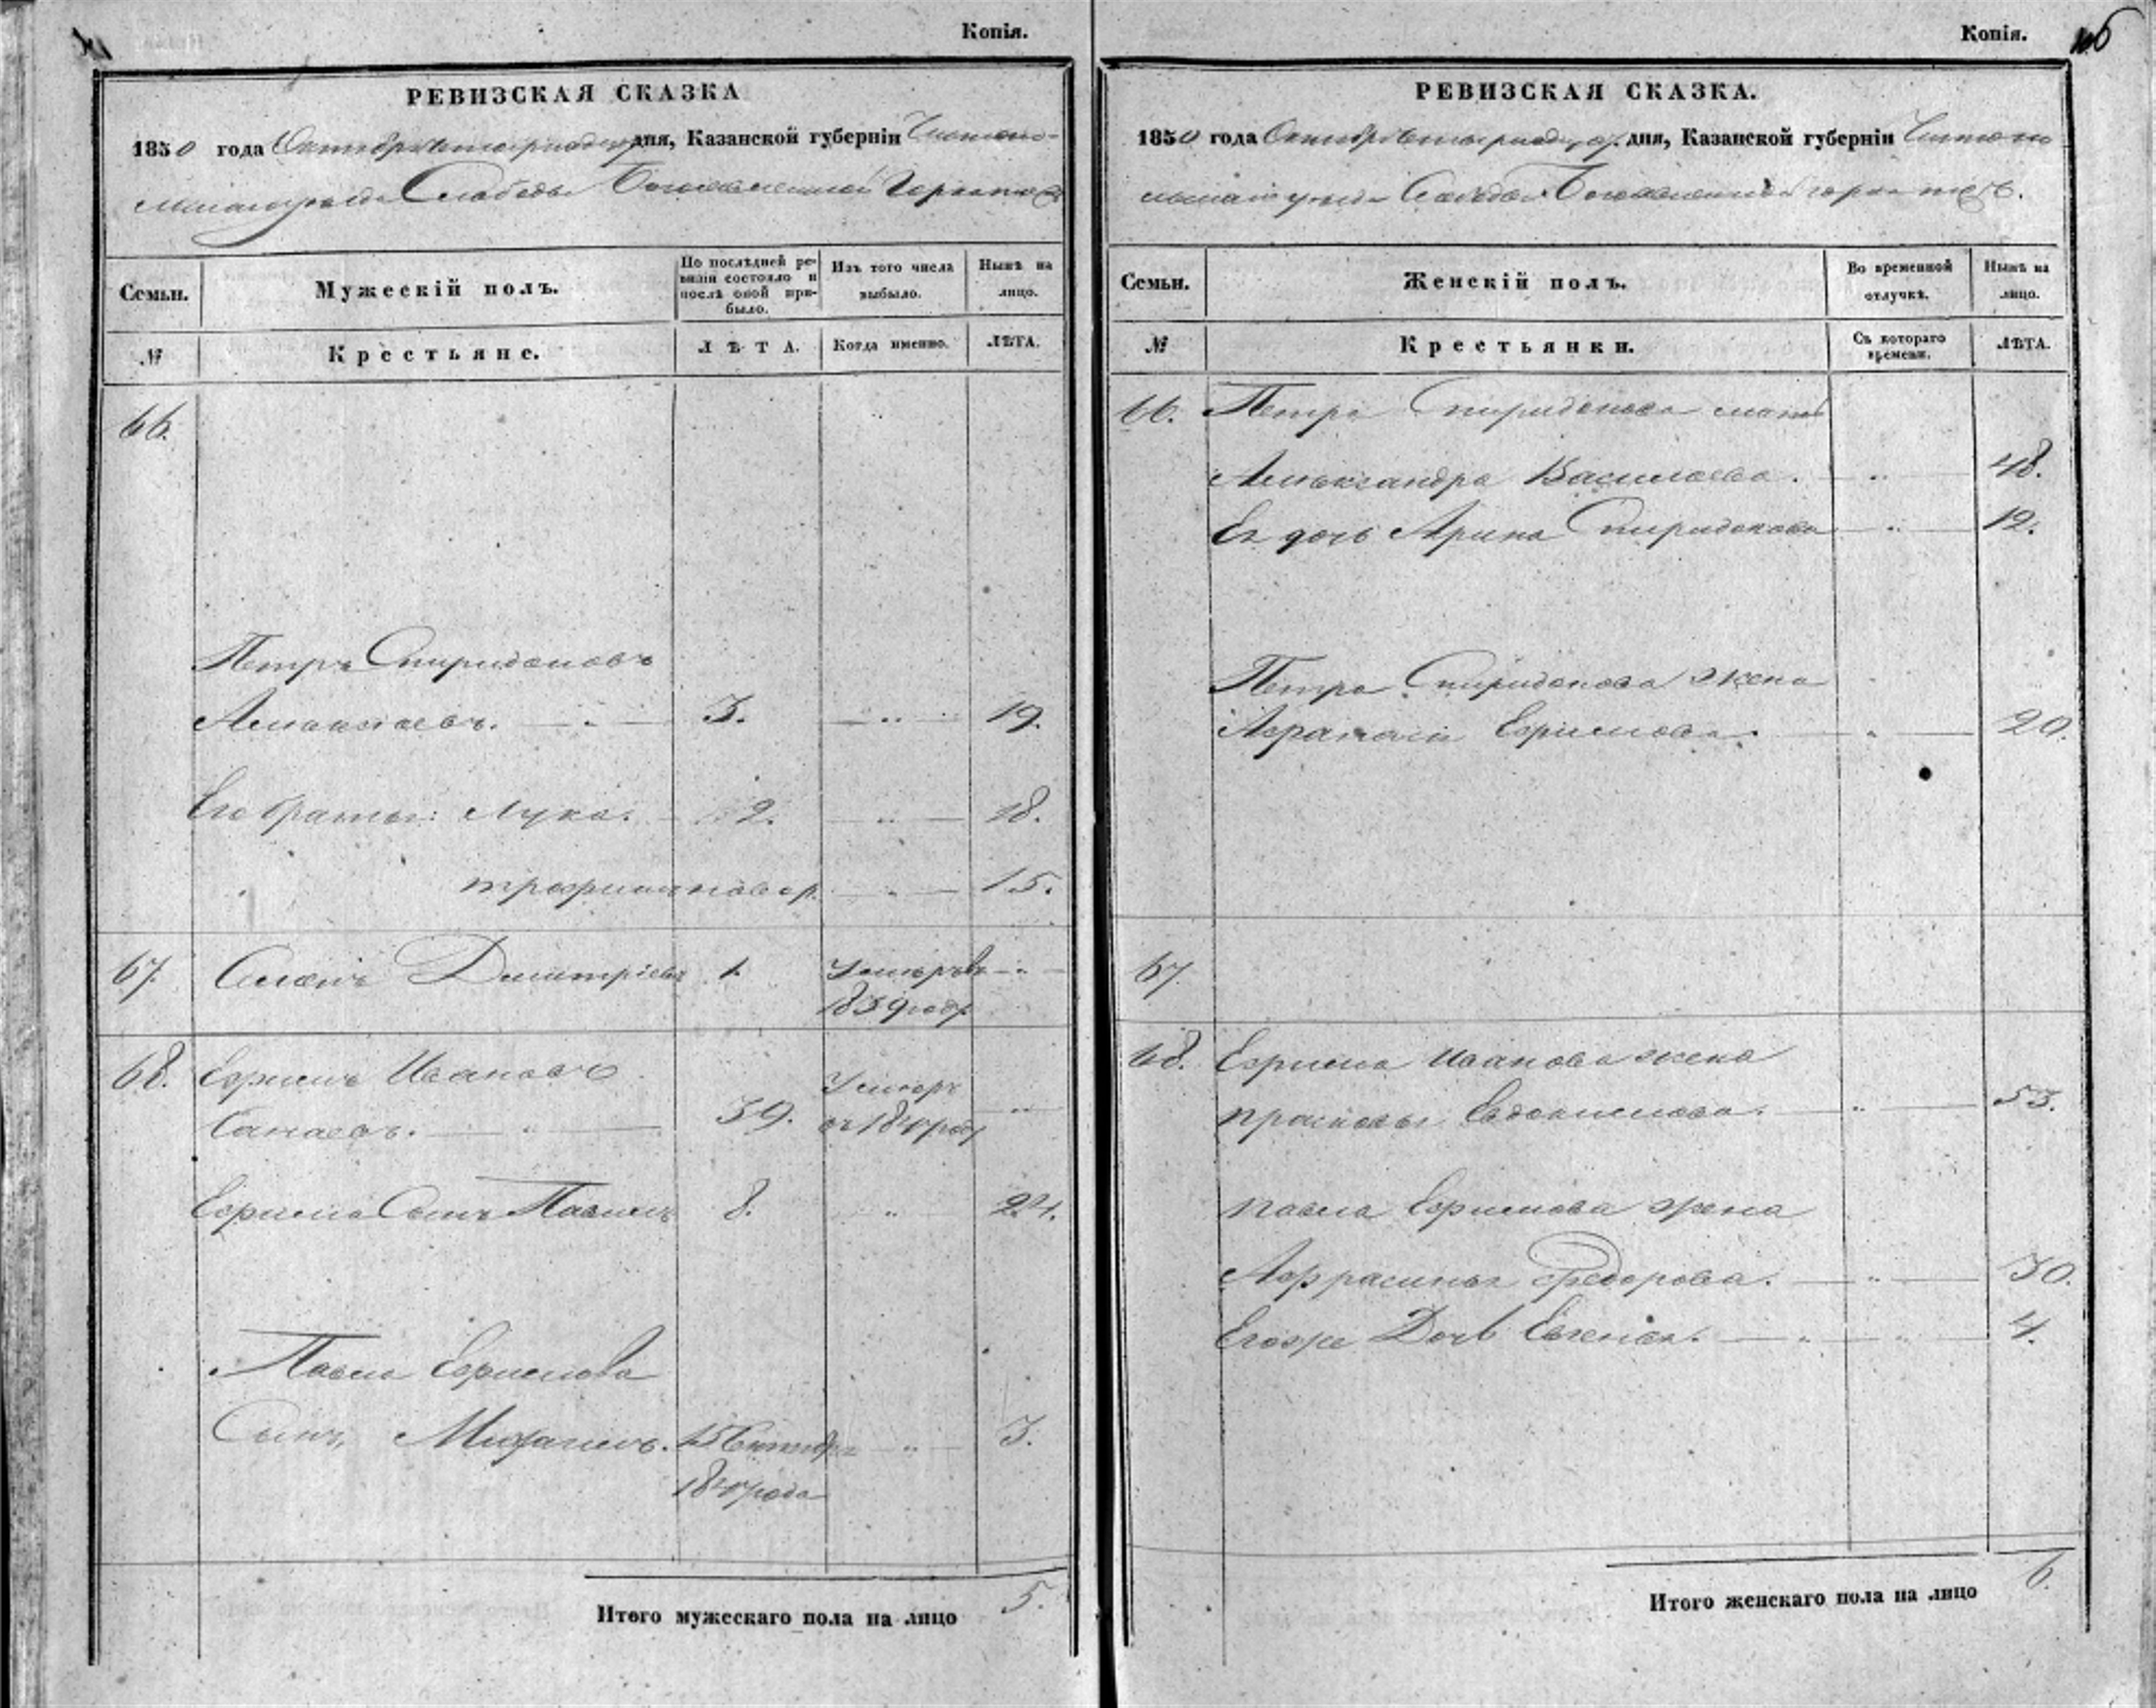 Копія.
РЕВИЗСКАЯ СКАЗКА
1850 года Октября дня, Казанской губерніи Чистопо-
Слободы Богоявленской Горшковъ
Семьи.
Мужескій полъ.
По послѣдней ре-
визіи состояло и
послѣ оной при-
было.
Изъ того числа
выбыло.
Нынѣ на
лицо.
№
Крестьяне.
ЛѢТА.
Когда именно.
ЛѢТА.
66.
Петръ Спиридоновъ
Алексѣевъ. 3. 19.
Его братья: Лука. 2. 18.
трофимъ новор. 15.
67. Дмитріевъ 1. Умеръ въ
1839 году
68. Ефимъ Ивановъ Умеръ
39. въ году
Ефима Сынъ Павелъ 8. 24.
Павла Ефимова
Сынъ, Михаилъ. 15 3.
1847 года
Итого мужескаго пола на лицо 5.
Копія.
РЕВИЗСКАЯ СКАЗКА.
1850 года Октября дня, Казанской губерніи Чистопо
уѣзда Слободы Богоявленской
Семьи.
Женскій полъ.
Во временной
отлучкѣ.
Нынѣ на
лицо.
№
Крестьянки.
Съ котораго
времени.
ЛѢТА.
66. Петра Спиридонова мать
Александра Васильева. 48.
Ея дочь Арина Спиридонова 12.
Петра Спиридонова жена
Ефимова. 20.
67.
68. Ефима Иванова жена
прасковья Евдокимова. 53.
павла Ефимова жена
Афрасинья Федорова. 30.
Егоже Дочь Евгенія. 4.
Итого женскаго пола на лицо 6.